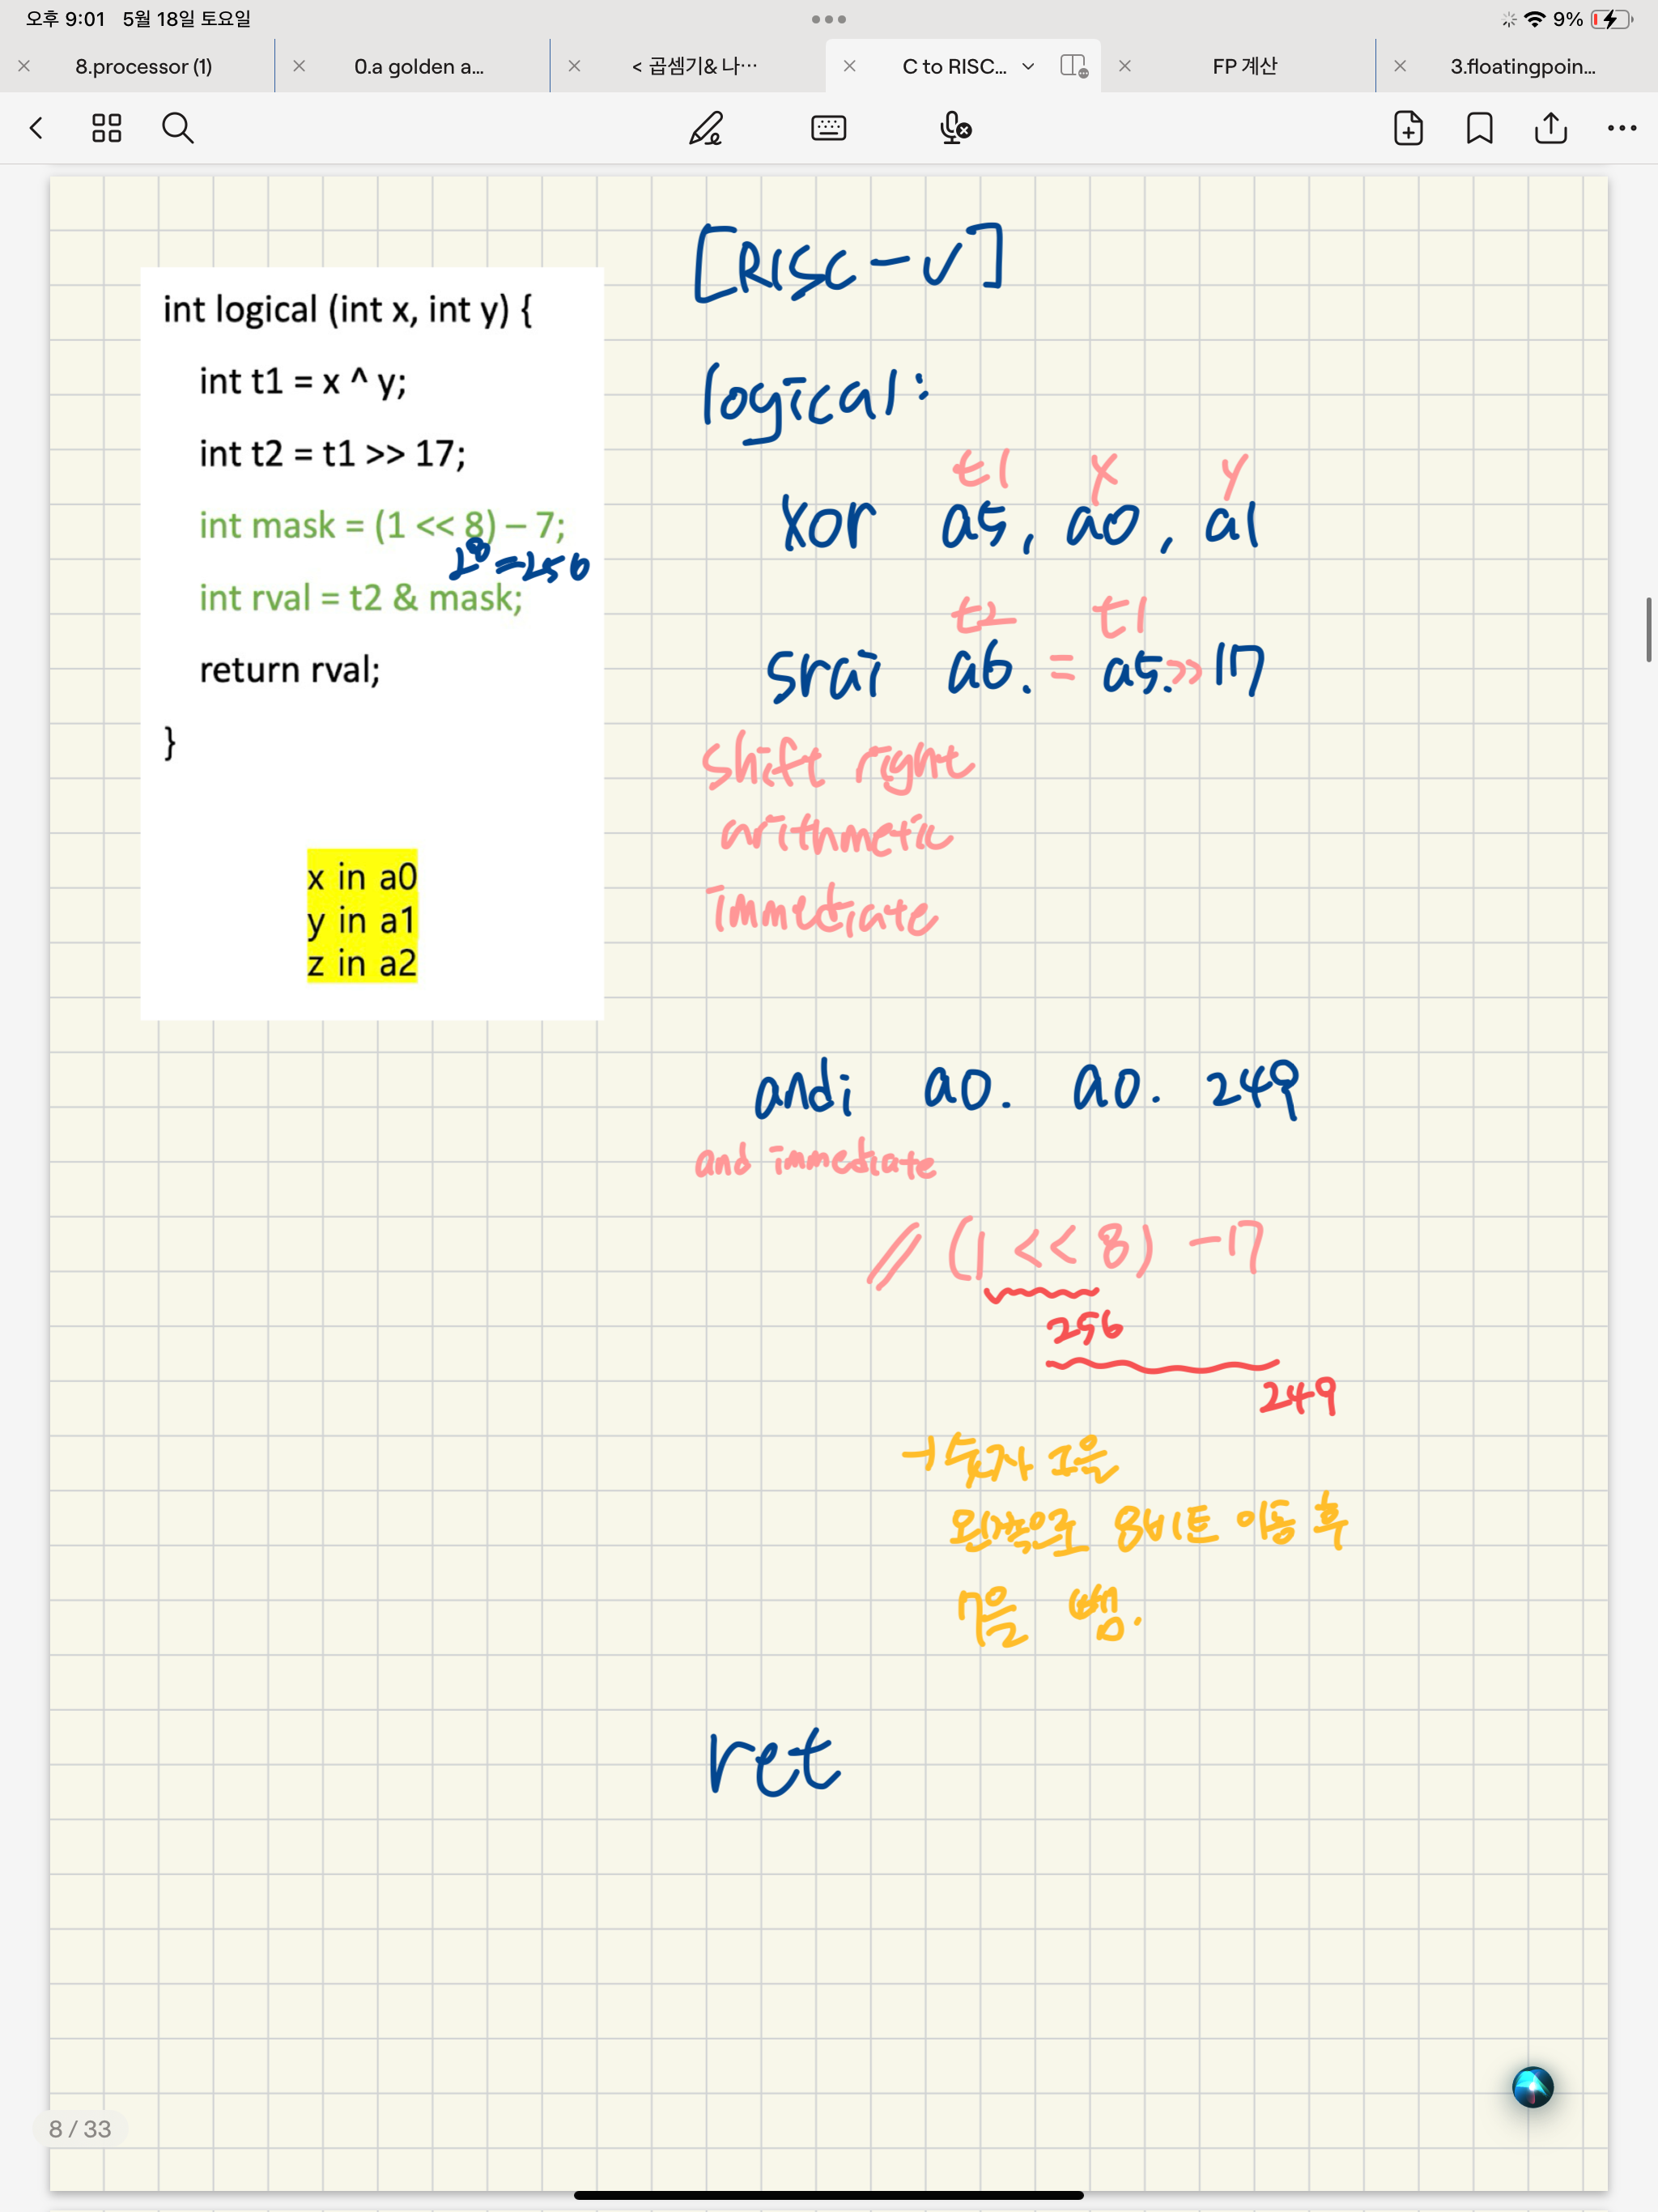 오후 9:01 5월 18일 토요일
9%
8.processor (1)
0.a golden a...
< 곱셈기& 나…
C to RISC...
FP 계산
3.floatingpoin...
[RISC-V]
int logical (int x, int y) {
int t1 = x ^ y;
int t2 = t1 >> 17;
int mask = (1 << 8) – 7;
2⁸=256
int rval = t2 & mask;
return rval;
}
x in a0
y in a1
z in a2
logical:
t1 x y
xor a5, a0, a1
t2 t1
srai a6. = a5.>> 17
shift right
arithmetic
immediate
andi a0. a0. 249
and immediate
// (1 << 8) -17
256
249
→숫자 1을
왼쪽으로 8비트 이동 후
7을 뺌.
ret
8 / 33